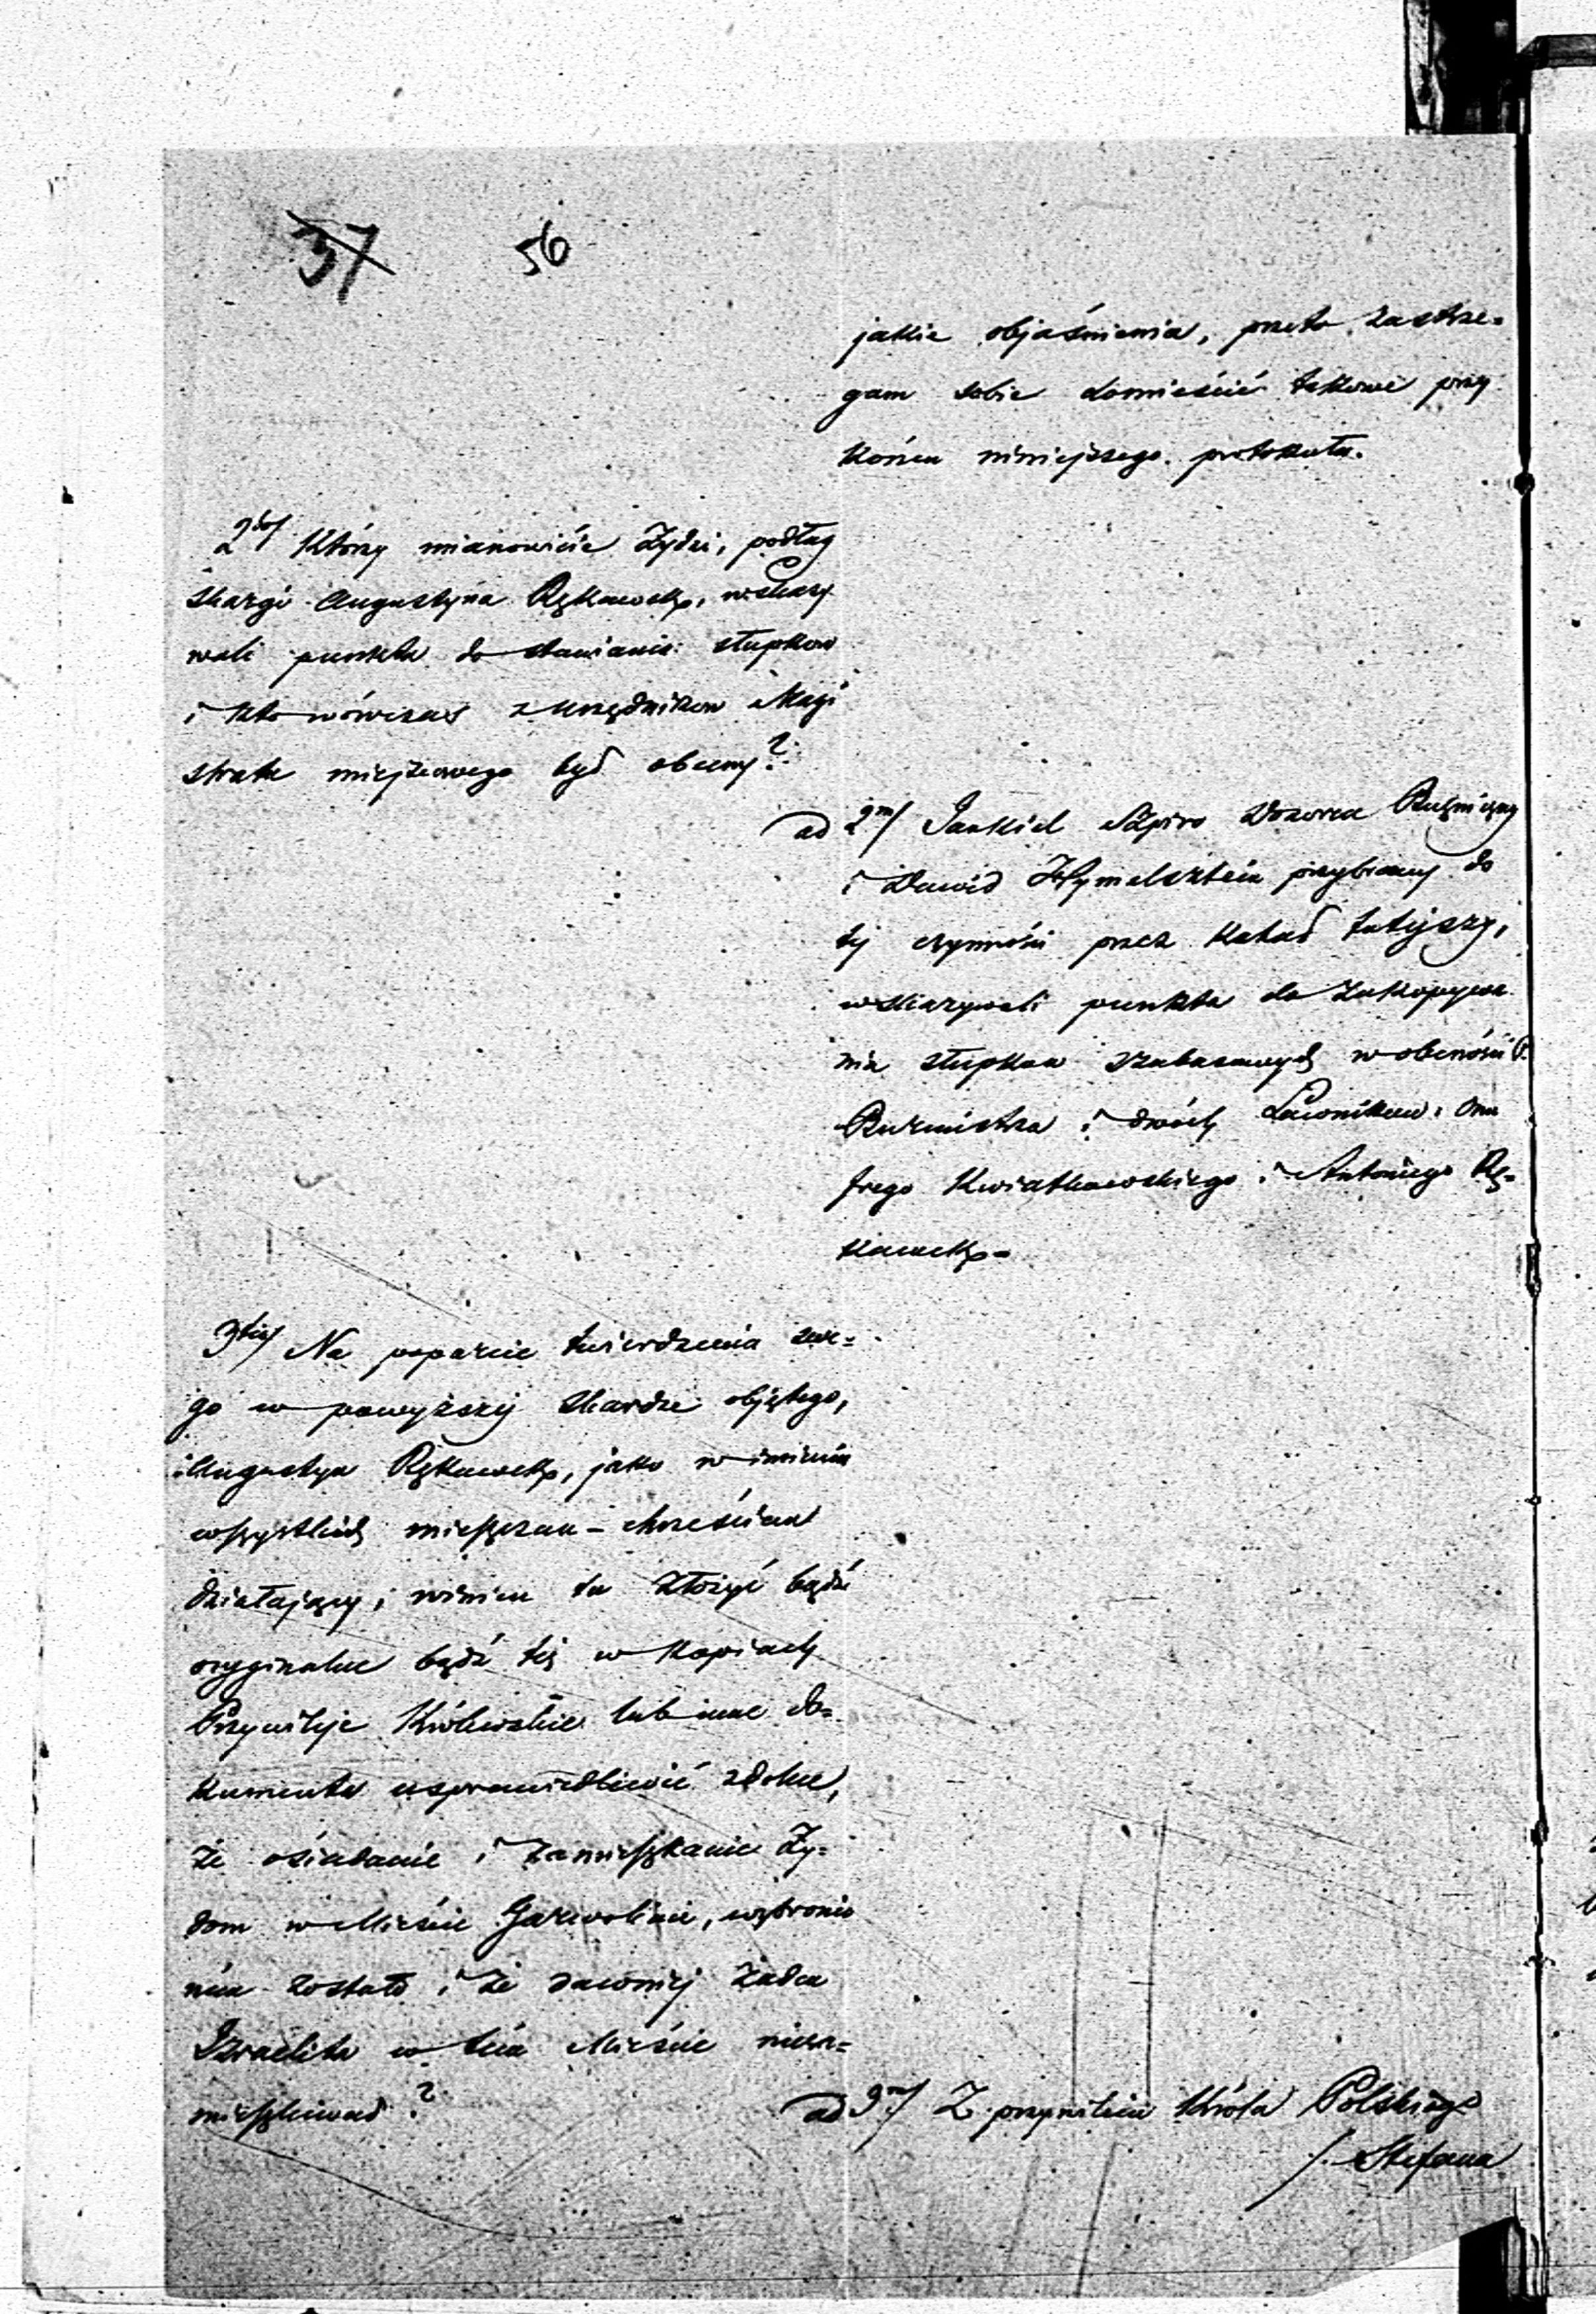 37 56
jakie objaśnienia, przeto zastrze=
gam sobie domieścić takowe przy
końcu niniejszego protokułu.
2do/ Którzy mianowicie Żydzi, podług
skargi Augustyna Rękawek, wskazy
wali punkta do stawiania słupkow
i kto wówczas z urzędnikow Magi
stratu miejscowego był obecny?
ad 2m/ Jankiel Szpiro Dozorca Bużniczny
i Dawid Hymelsztein przybrany do
tej czynności przez Kahał tutejszy,
wskazywali punkta do zakopywa
nia słupkow szabasowych w obecności P.
Burmistrza i dwóch Ławnikow: Onu
frego Kwiatkowskiego i Antoniego Rę=
kawek
3tio/ Na poparcie twierdzenia swe=
go w powyższej skardze objętego,
Augustyn Rękawek, jako w imieniu
wszystkich mieszczan-chrześcian
działający, winien tu złożyć bądź
oryginalne bądź też w kopiach
Przywileje Królewskie lub inne do=
kumenta usprawiedliwić zdolne,
że osiadanie i zamieszkanie Ży=
dom w Mieście Garwolinie, wzbronio
ném zostało i że dawniej żaden
Izraelita w tém Mieście nieza=
mieszkiwał?
ad 3m/ Z przywileiu Króla Polskiego
/. Stefana